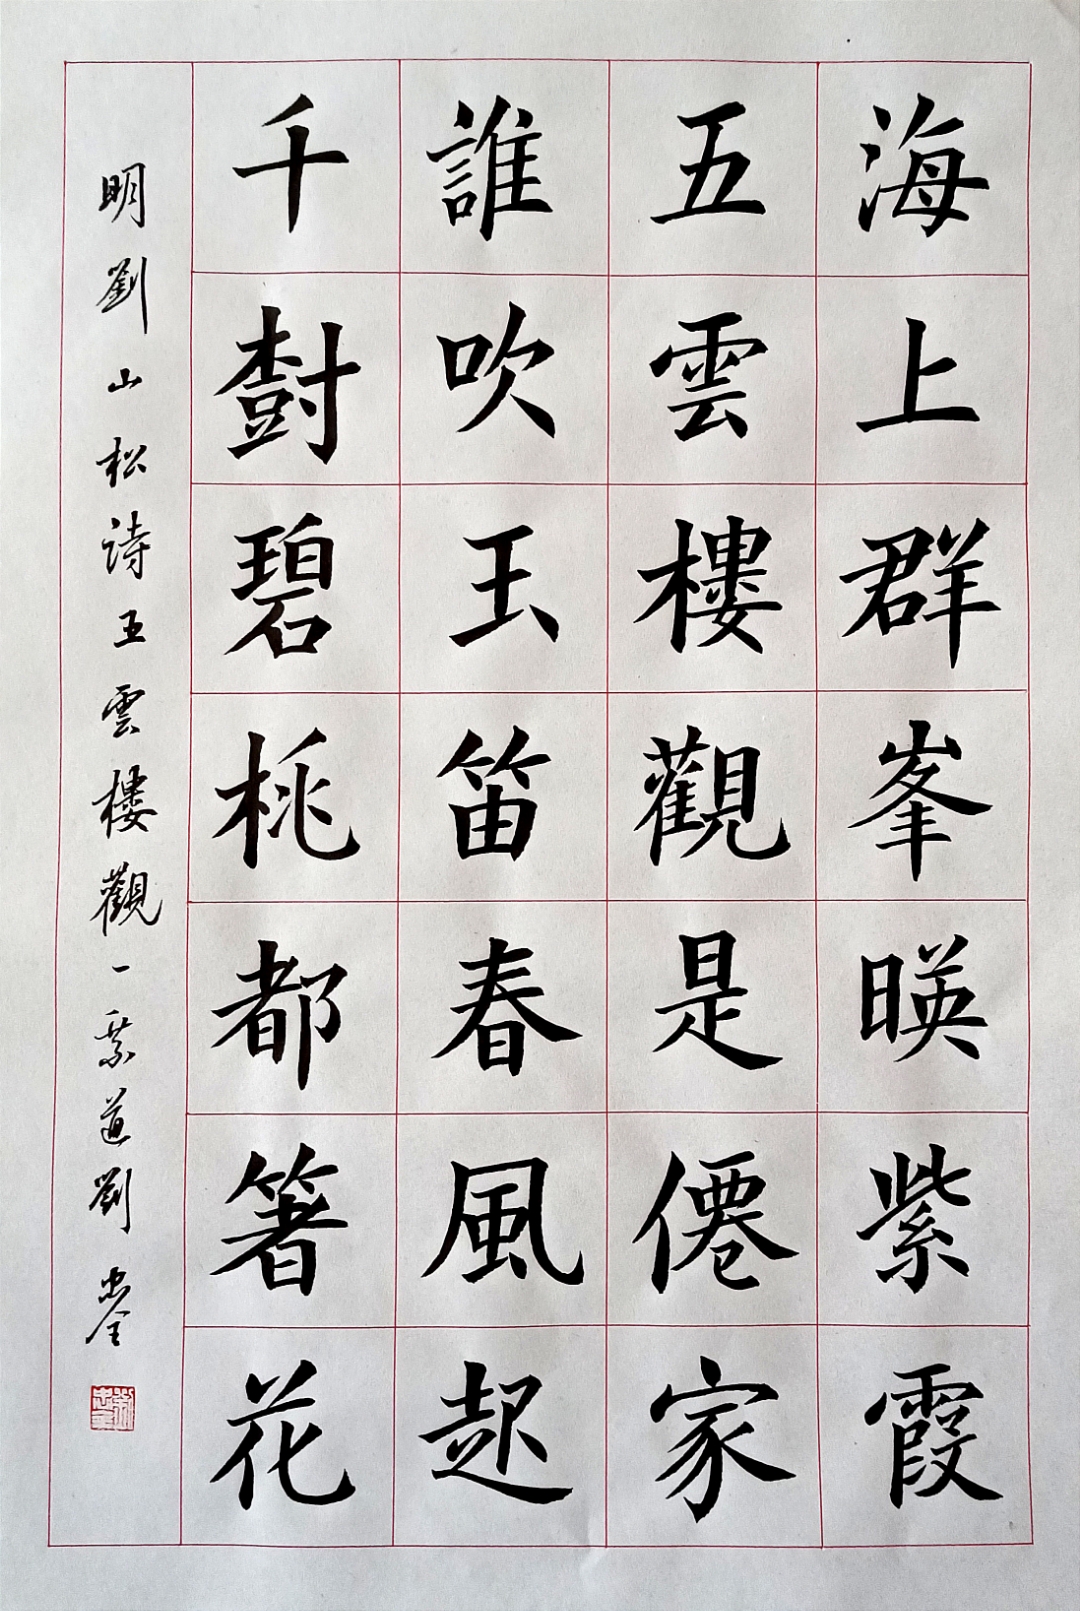 海上群峯暎紫霞
五雲樓觀是僊家
誰吹玉笛春風起
千樹碧桃都箸花
明劉山松詩五雲樓觀一道劉忠全